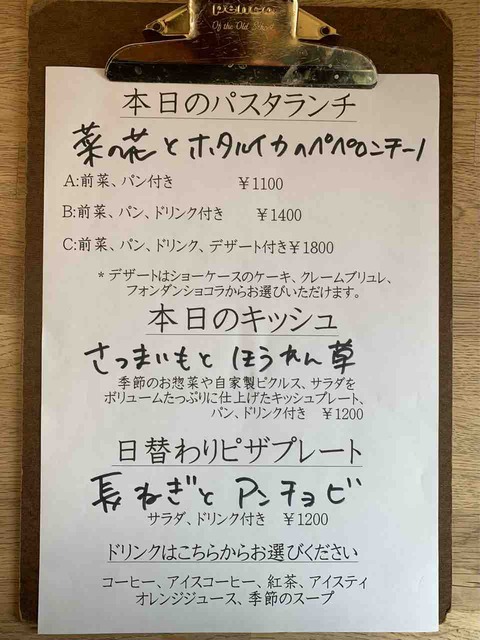 penco
Of the Old School
本日のパスタランチ
菜の花とホタルイカのペペロンチーノ
A:前菜、パン付き ¥1100
B:前菜、パン、ドリンク付き ¥1400
C:前菜、パン、ドリンク、デザート付き¥1800
* デザートはショーケースのケーキ、クレームブリュレ、
フォンダンショコラからお選びいただけます。
本日のキッシュ
さつまいもとほうれん草
季節のお惣菜や自家製ピクルス、サラダを
ボリュームたっぷりに仕上げたキッシュプレート、
パン、ドリンク付き ¥1200
日替わりピザプレート
長ねぎとアンチョビ
サラダ、ドリンク付き ¥1200
ドリンクはこちらからお選びください
コーヒー、アイスコーヒー、紅茶、アイスティ
オレンジジュース、季節のスープ